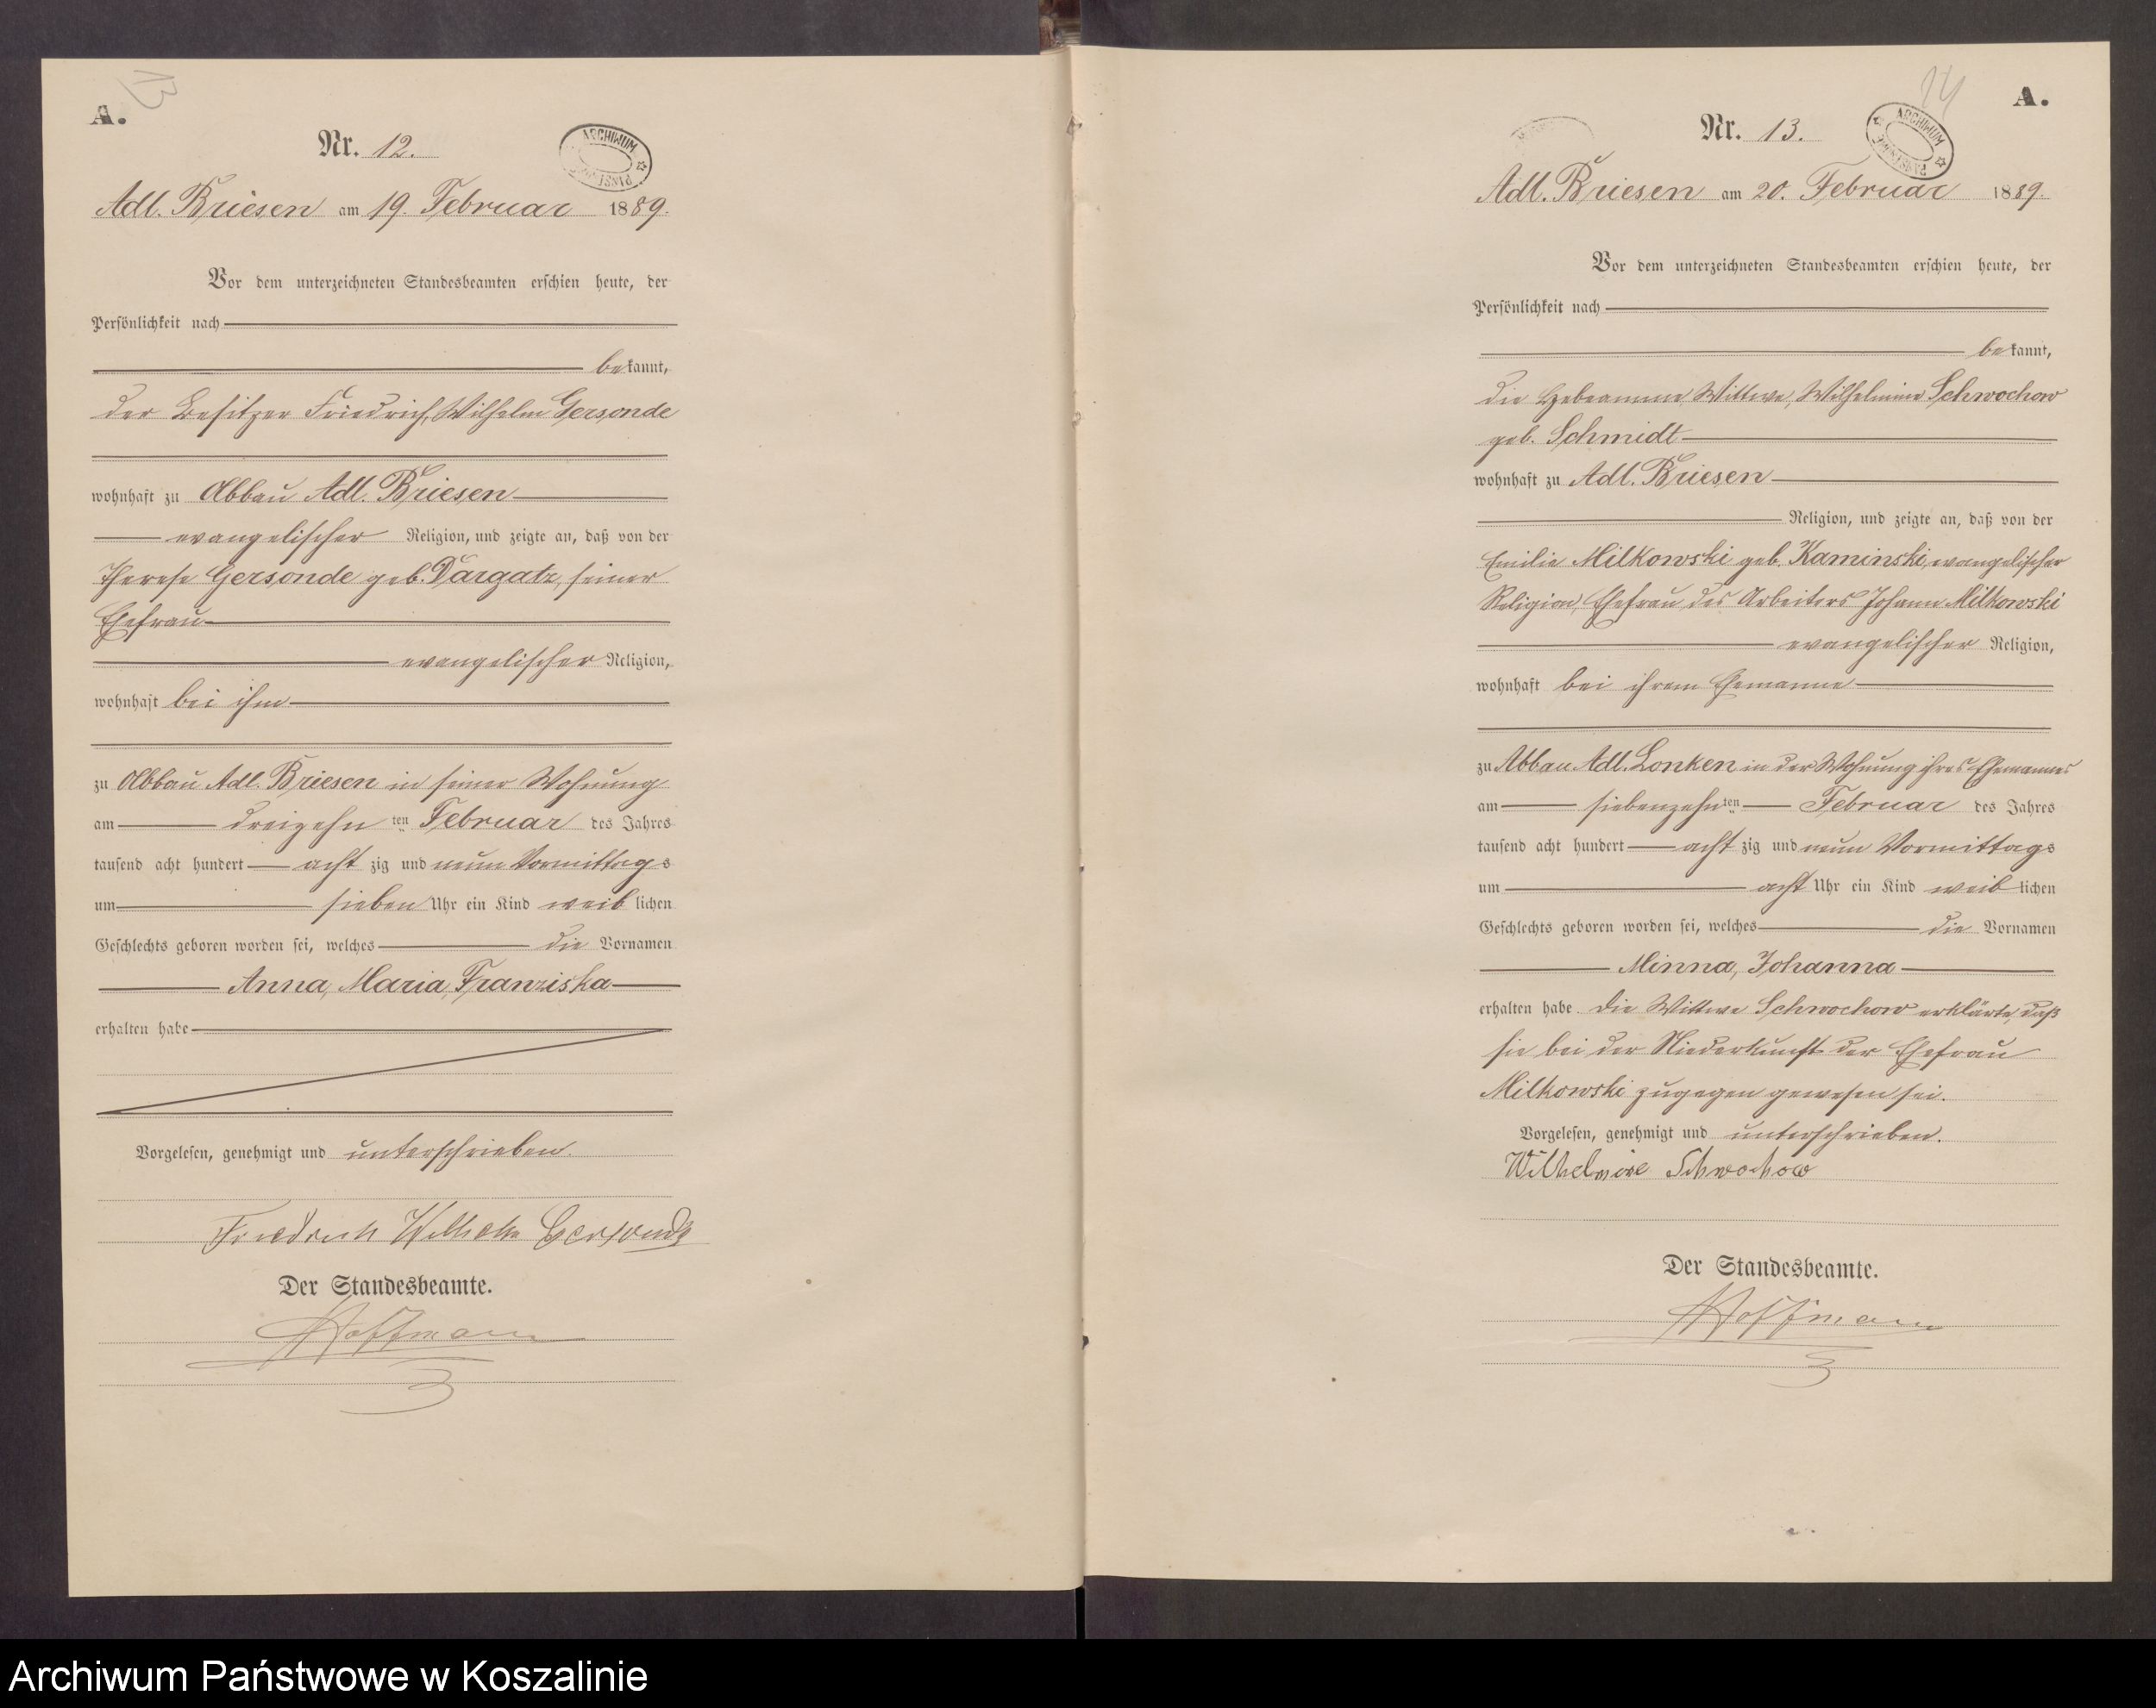 13
A.
Nr. 12.
ARCHIWUM PAŃSTWOWE
Adl. Briesen am 19. Februar 1889.
Vor dem unterzeichneten Standesbeamten erschien heute, der
Persönlichkeit nach
bekannt,
der Besitzer Friedrich, Wilhelm Gersonde
wohnhaft zu Abbau Adl. Briesen
evangelischer Religion, und zeigte an, daß von der
Therese Gersonde geb. Dargatz, seiner
Ehefrau
evangelischer Religion,
wohnhaft bei ihm
zu Abbau Adl. Briesen in seiner Wohnung
am dreizehn ten Februar des Jahres
tausend acht hundert acht zig und neun Vormittags
um sieben Uhr ein Kind weiblichen
Geschlechts geboren worden sei, welches die Vornamen
Anna, Maria, Franziska
erhalten habe
Vorgelesen, genehmigt und unterschrieben.
Friedrich Wilhelm Gersonde
Der Standesbeamte.
Hoffmann
14
A.
Nr. 13.
ARCHIWUM PAŃSTWOWE
Adl. Briesen am 20. Februar 1889.
Vor dem unterzeichneten Standesbeamten erschien heute, der
Persönlichkeit nach
bekannt,
die Hebeamme, Wittwe, Wilhelmine Schwochow
geb. Schmidt
wohnhaft zu Adl. Briesen
Religion, und zeigte an, daß von der
Emilie Milkowski geb. Kaminski, evangelischer
Religion, Ehefrau des Arbeiters Johann Milkowski
evangelischer Religion,
wohnhaft bei ihrem Ehemanne
zu Abbau Adl. Lonken in der Wohnung ihres Ehemannes
am siebenzehn ten Februar des Jahres
tausend acht hundert acht zig und neun Vormittags
um acht Uhr ein Kind weiblichen
Geschlechts geboren worden sei, welches die Vornamen
Minna, Johanna
erhalten habe. Die Wittwe Schwochow erklärte, daß
sie bei der Niederkunft der Ehefrau
Milkowski zugegen gewesen sei.
Vorgelesen, genehmigt und unterschrieben.
Wilhelmine Schwochow
Der Standesbeamte.
Hoffmann
Archiwum Państwowe w Koszalinie